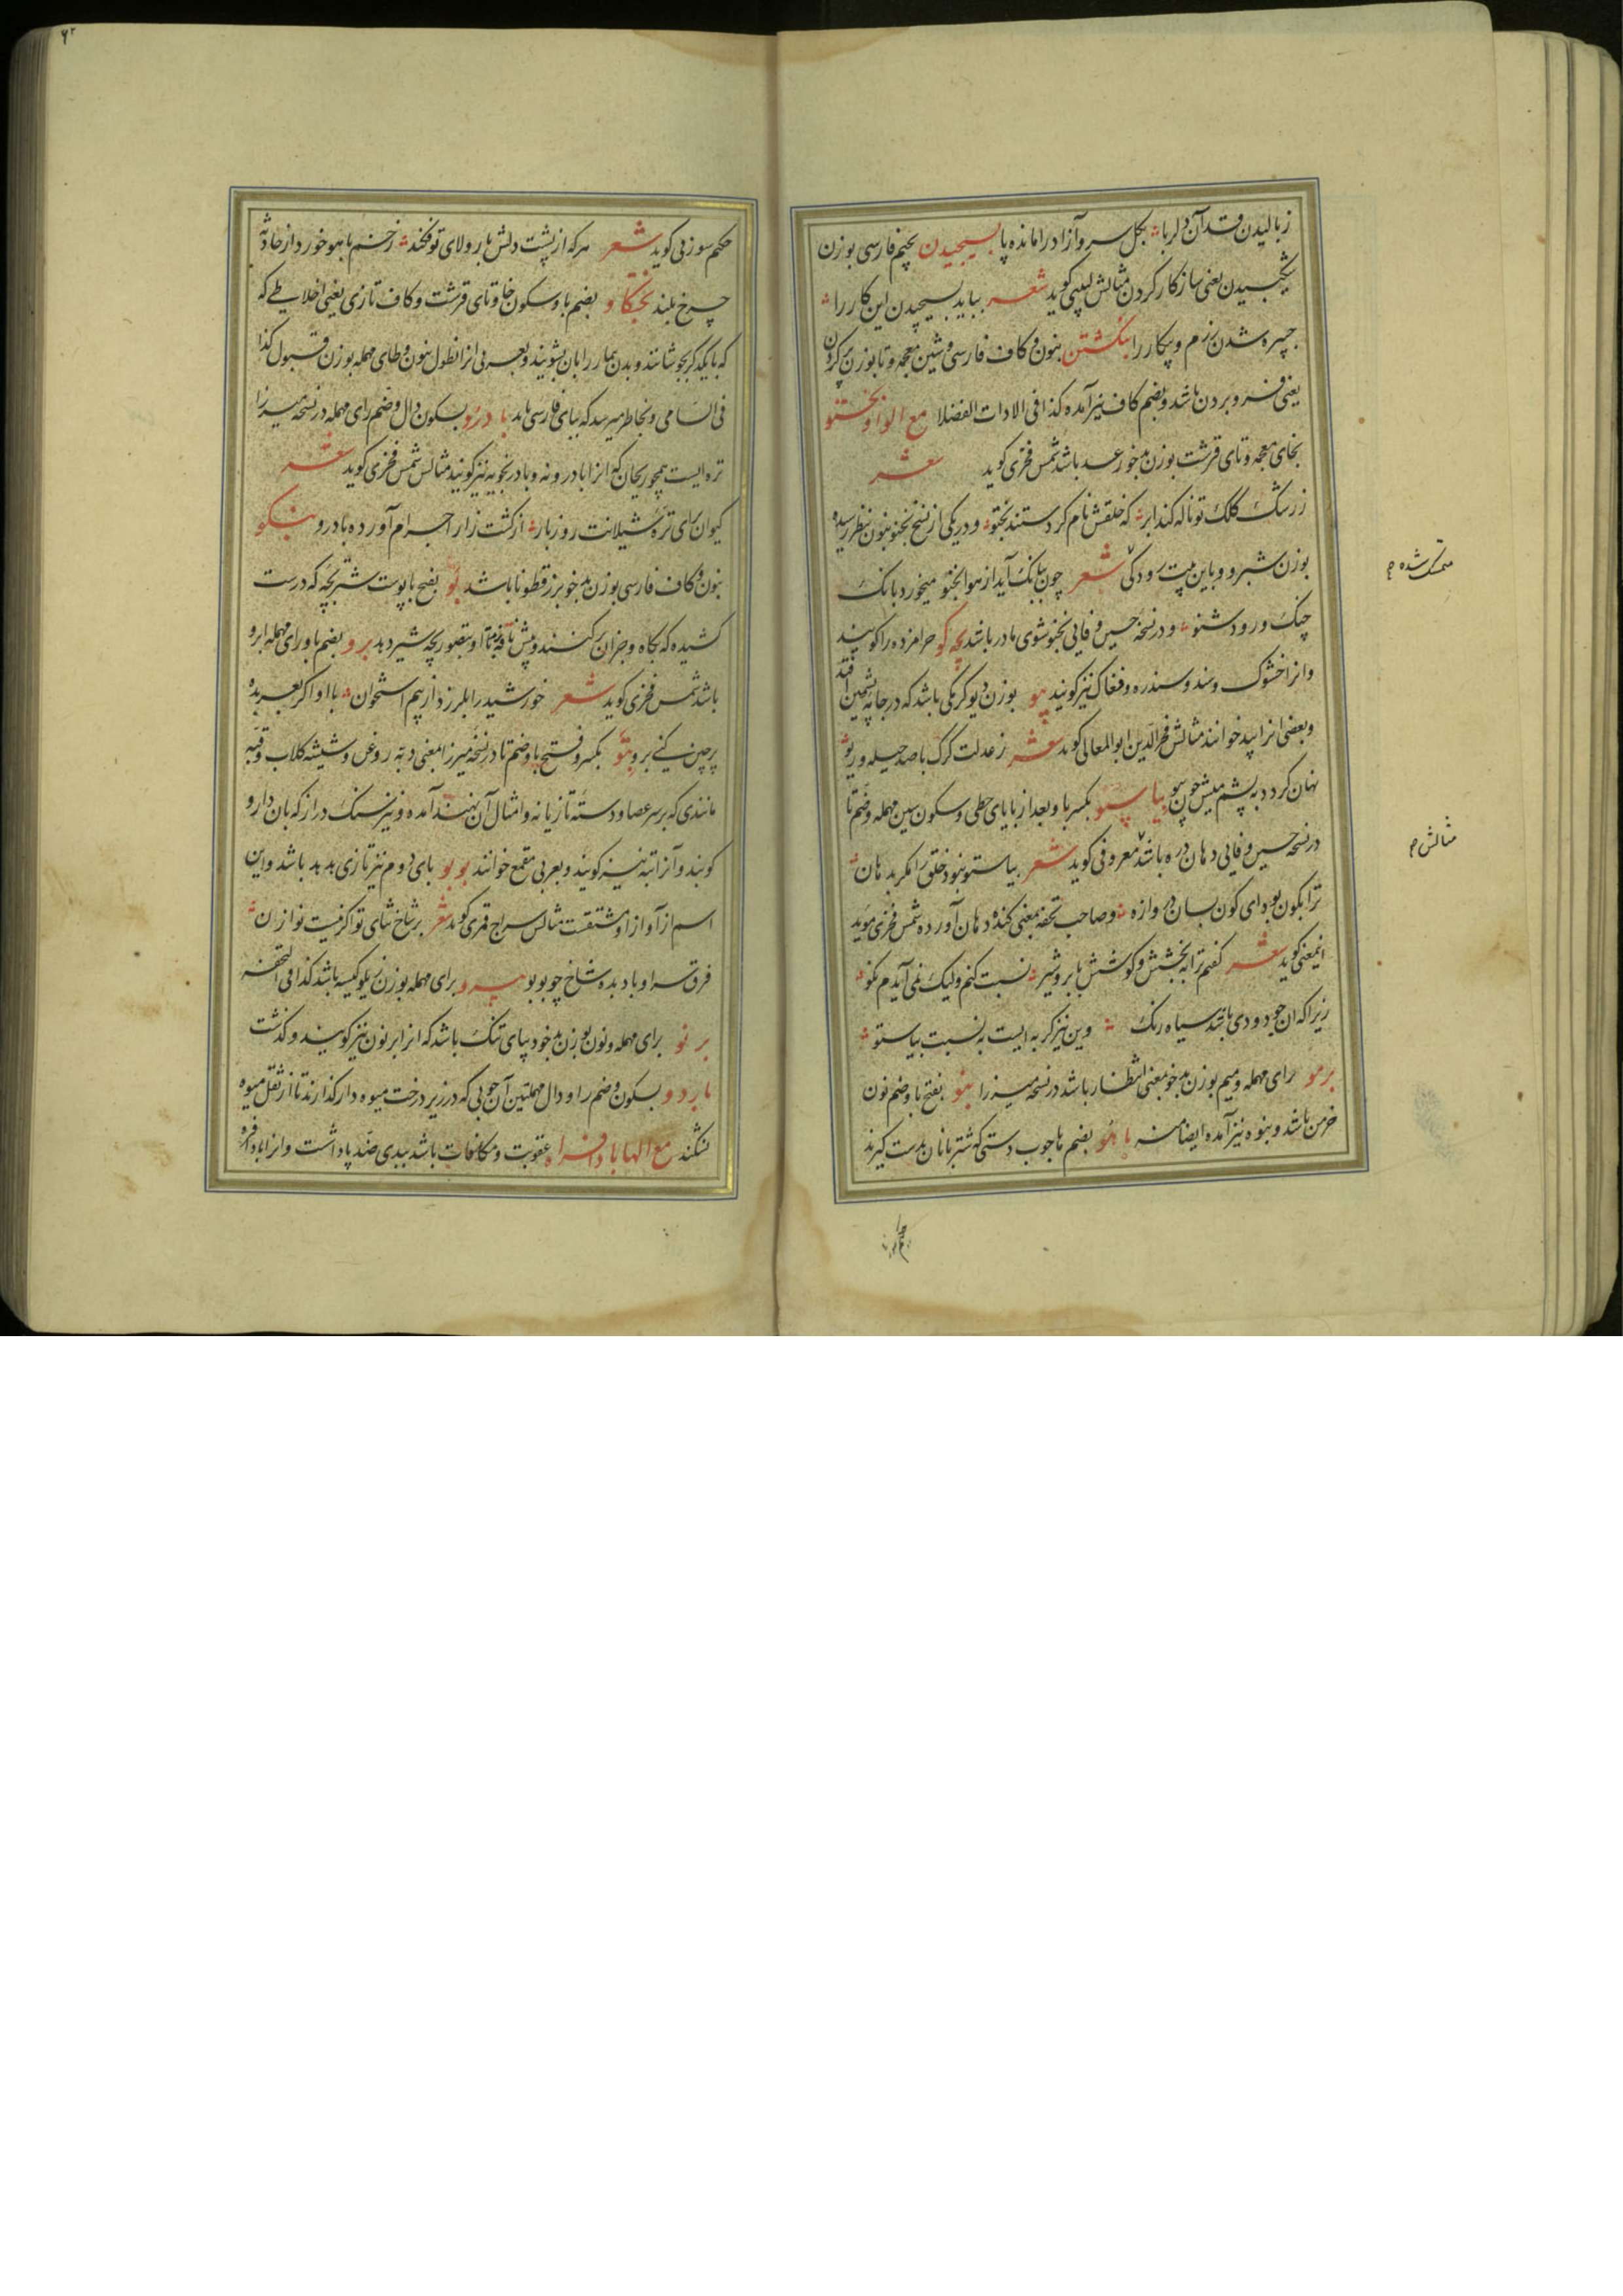 ز بالیدن قد آن دلربا بگل سرو آزاد را مانده پا بسیجیدن بجیم فارسی بوزن
شکیبیدن یعنی ساز کار کردن مثالش لبیبی کوید شعر بباید بسیچیدن این کار را
چیره شدن رزم و پیکار را بنکشتن بنون و کاف فارسی و شین معجمه و تا بوزن
یعنی فرو بردن باشد و بضم کاف نیز آمده کذا فی الادات الفضلا مع الواو بختو
بخای معجمه و تای قرشت بوزن بدخو رعد باشد شمس فخری کوید شعر
ز رشک کلک تو ناله کند ابر که خلقش نام کردستند بختو و در یکی از نسخ بخنو بنون بنظر رسیده
بوزن شبرو و باین بیت رودکی شعر چون ببانک آید از هوا بخنو میخور و بانک
چنک و رود شنو و در نسخه حسین وفایی بختو شوی مادر باشد بچه کو حرامزاده را کویند
و انرا خشوک و سند و سندره و فغاک نیز کویند بیو بوزن دیو کرمکی باشد که در جامه پشمین افتد
و بعضی انرا بید خوانند مثالش فخر الدین ابوالمعالی کوید شعر ز عدلت کرک با صد حیله و ریو
نهان کردد به پشم میش چون بیو بیاستو بکسر با و بعد از با یای حطی و سکون سین مهمله و ضم تا
در نسخه حسین وفایی دهان دره باشد معروفی کوید شعر بیاستو نبود خلق را مکر بدهان
ترا بکون بود ای کون بسان دروازه و صاحب تحفه بمعنی کنده دهان آورده شمس فخری موید
اینمعنی کوید شعر کفتم ترا به بخشش و کوشش با بر و شیر نسبت کنم ولیک نمی آیدم نکو
زیرا که ان چو دودی باشد سیاه رنک وین نیز کربه ایست به نسبت بیاستو
برمو برای مهمله و میم بوزن بدخو بمعنی انتظار باشد در نسخه میرزا بنو بفتح با و ضم نون
خرمن باشد و بنوه نیز آمده ایضا منه باهو بضم ها چوب دستی که شتربانان بدست کیرند
متمسک شده م
مثالش م
۶۲
حکیم سوزنی کوید شعر هر که از پشت دلش بار ولای تو فکند زخم باهو خورد از حادثه
چرخ بلند بختکاو بضم با و سکون خا و تای قرشت و کاف تازی یعنی اخلاطی که
که با یکدکر بجوشانند و بدن بیمار را بان بشویند و بعربی انرا نطول بنون و طای مهمله بوزن قبول کذا
فی السامی و بخاطر میرسد که ببای فارسی باید بادرو بسکون دال و ضم رای مهمله در نسخه میرزا
تره ایست همچو ریحان که انرا بادرونه و بادرنجویه نیز کویند مثالش شمس فخری کوید شعر
کیوان برای تره شیلانت روز بار از کشت زار اجرام آورده بادرو بنکو
بنون و کاف فارسی بوزن بدخو بزر قطونا باشد بو بفتح با پوست شتر بچه که درست
کشیده که بکاه و جز ان پر کنند و پیش ناقه نهند تا او بتصور بچه شیر دهد برو بضم با و رای مهمله ابرو
باشد شمس فخری کوید شعر خورشید را بلرزد از بیم استخوان با او اکر بعربده
پرچین کنی برو بتو بکسر و فتح با و ضم تا در نسخه میرزا بمعنی دبه روغن و شیشه کلاب و قبه
مانندی که بر سر عصا و دسته تازیانه و امثال آن نهند آمده و نیز سنک دراز که بان دارو
کوبند و آنرا بته نیز کویند و بعربی مقمع خوانند بوبو بای دوم نیز تازی هدهد باشد و این
اسم از آواز او مشتقست مثالش سراج قمری کوید شعر بر شاخ ثنای تو اکر نیست نوازن
فرق سر او باد بده شاخ چو بوبو بیرو برای مهمله بوزن نیلو کیسه باشد کذا فی التحفه
برنو برای مهمله و نون بوزن بدخو دیبای تنک باشد که انرا برنون نیز کویند و کذشت
باردو بسکون و ضم را و دال مهملتین آن چوبی که در زیر درخت میوه دار کذارند تا از ثقل میوه
نشکند مع الها بادافراه عقوبت و مکافات باشد ببدی ضد پاداشت و انرا بادافره